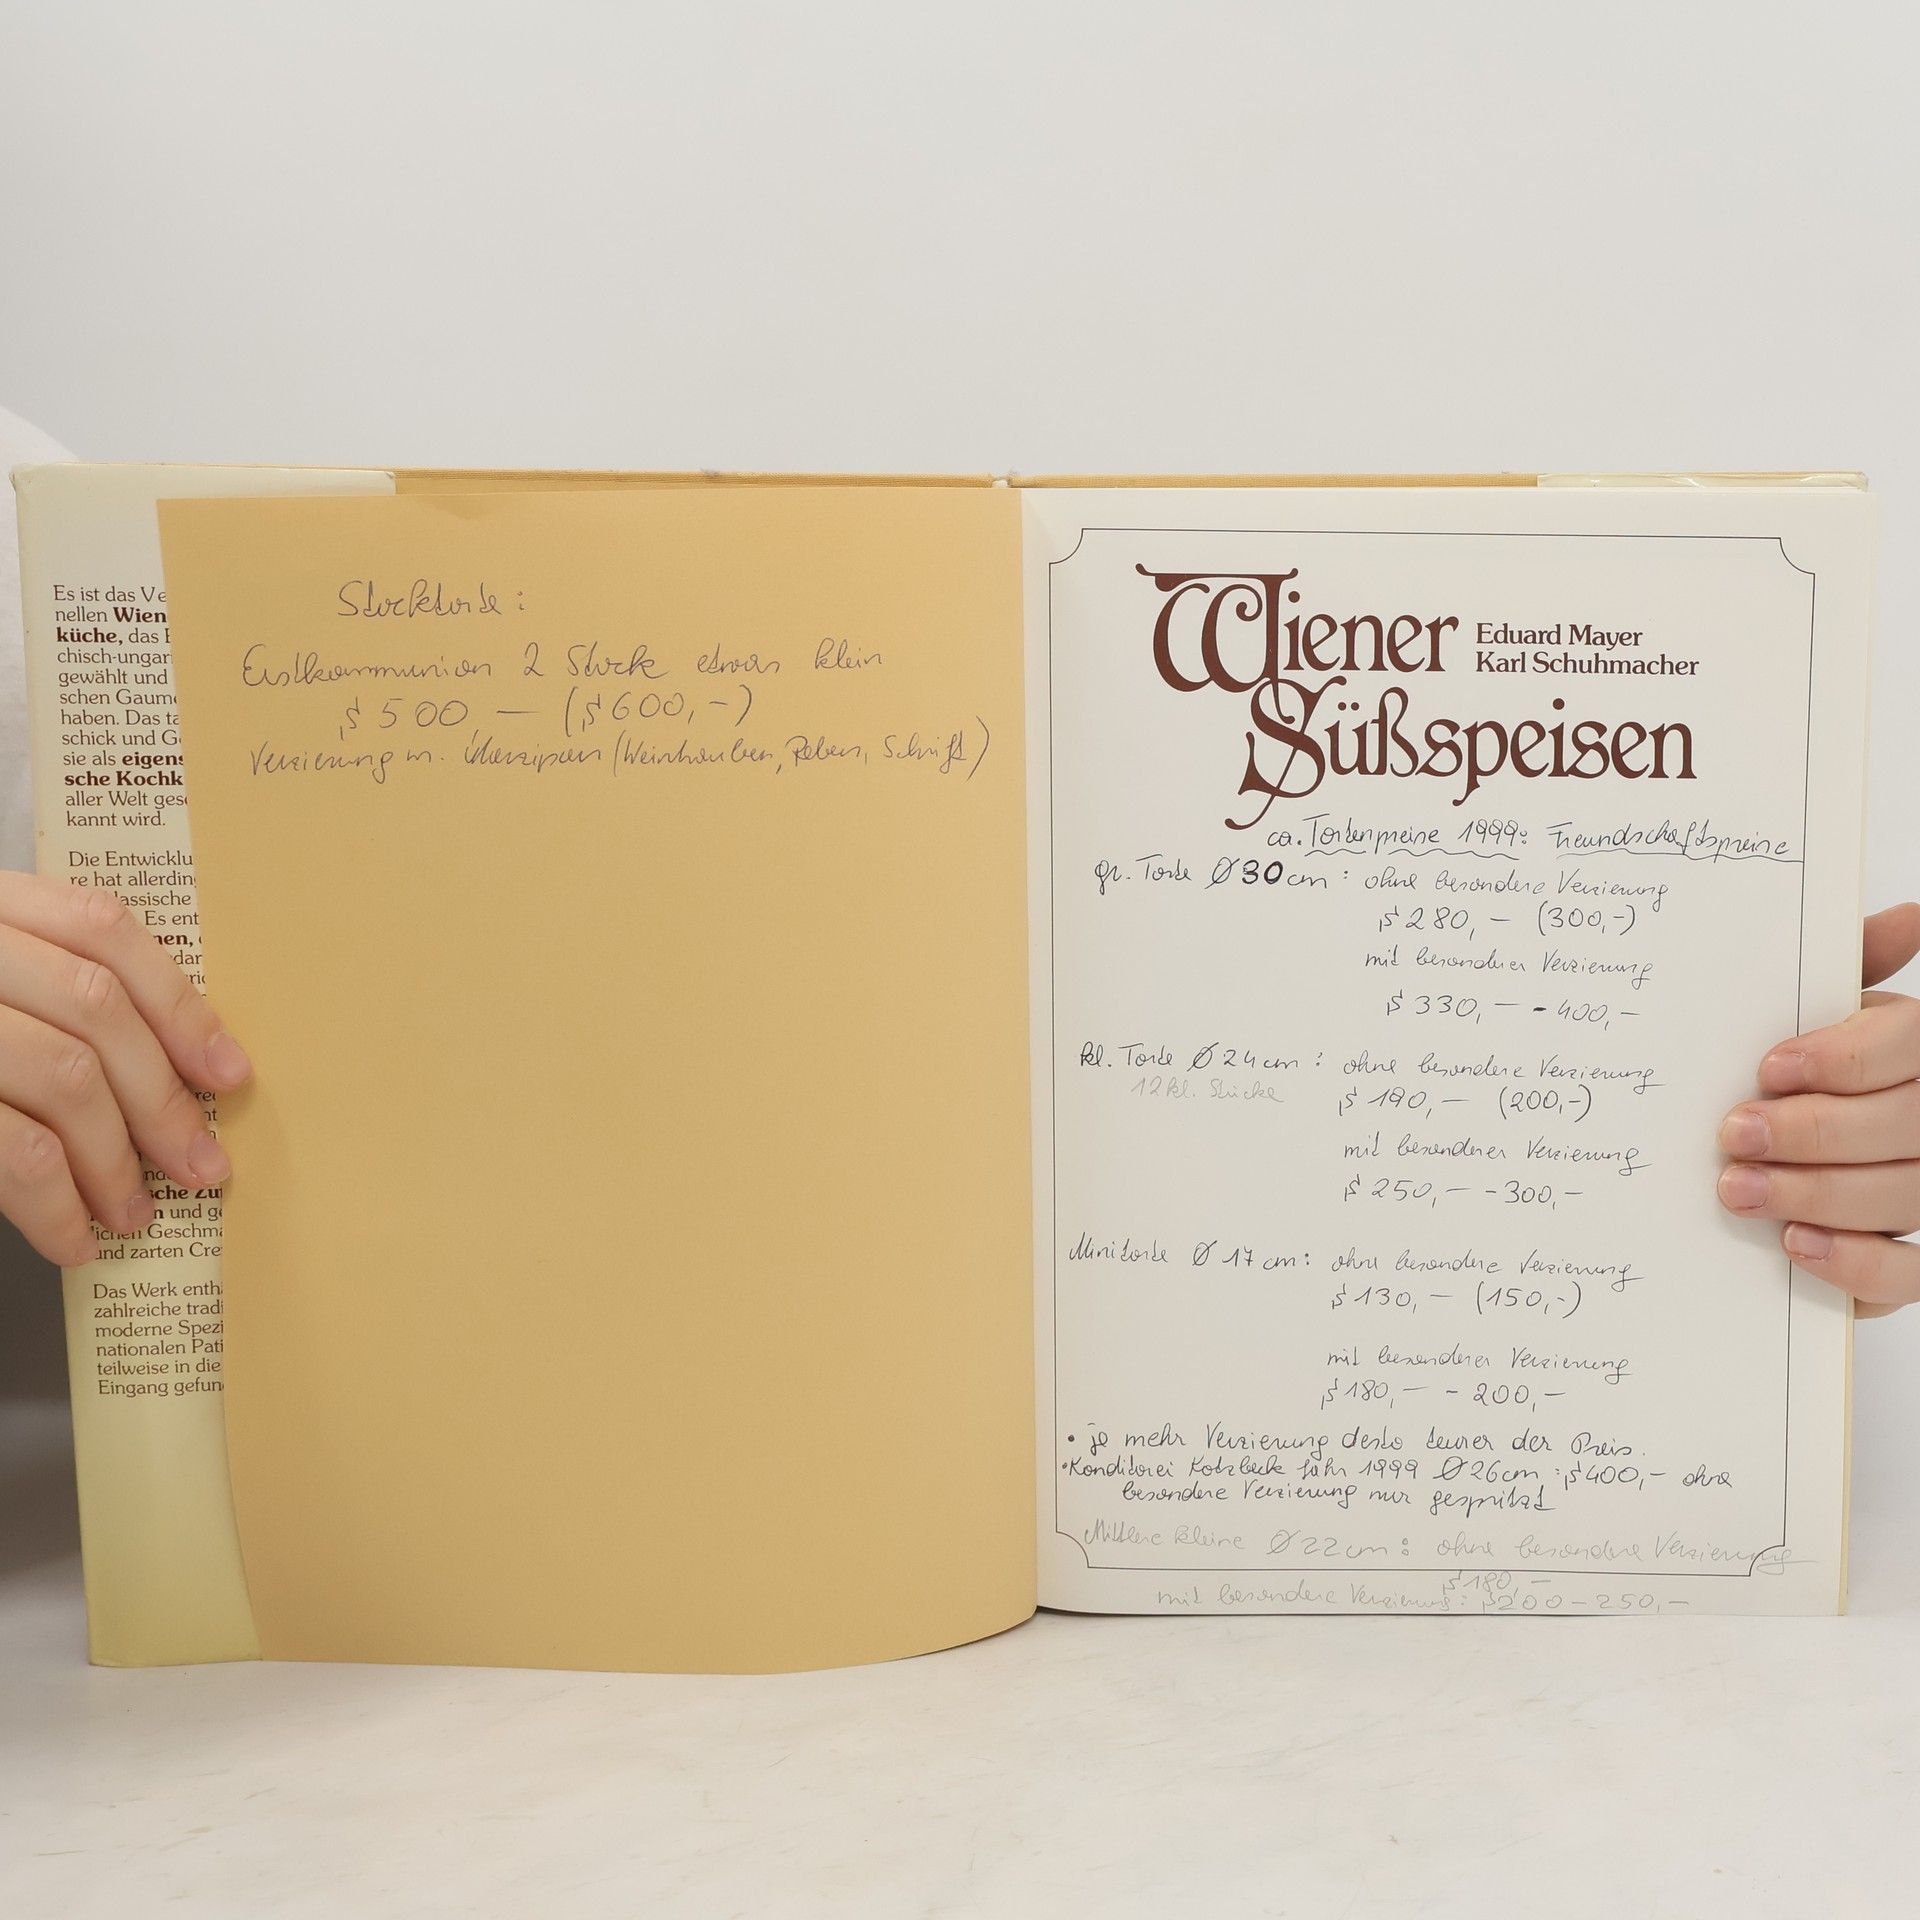 Es ist das Ve
nellen Wien
küche, das
chisch-ungari
gewählt und
schen Gaume
haben. Das ta
schick und G
sie als eigens
sche Kochk
aller Welt ges
kannt wird.
Die Entwicklu
re hat allerdin
lassische
Es ent
nen,
dar
nd
sche Zu
n und ge
lichen Geschma
und zarten Cre
Das Werk enth
zahlreiche tradi
moderne Spezi
nationalen Pati
teilweise in die
Eingang gefun
Stocktorte:
Erstkommunion 2 Stock etwas klein
S 500 — (S 600,-)
Verzierung m. Marzipan (Weintrauben, Reben, Schrift)
Wiener
Eduard Mayer
Karl Schuhmacher
Süßspeisen
ca. Tortenpreise 1999: Freundschaftspreise
gr. Torte Ø 30 cm: ohne besondere Verzierung
S 280,— (300,-)
mit besonderer Verzierung
S 330,— - 400,—
kl. Torte Ø 24 cm: ohne besondere Verzierung
12 kl. Stücke
S 190,— (200,-)
mit besonderer Verzierung
S 250,— - 300,—
Minitorte Ø 17 cm: ohne besondere Verzierung
S 130,— (150,-)
mit besonderer Verzierung
S 180,— - 200,—
• je mehr Verzierung desto teurer der Preis.
• Konditorei Kotzbeck Jahr 1999 Ø 26 cm: S 400,— ohne
besondere Verzierung nur gespritzt
Mittlere kleine Ø 22 cm: ohne besondere Verzierung
S 180,—
mit besondere Verzierung: S 200 – 250,—